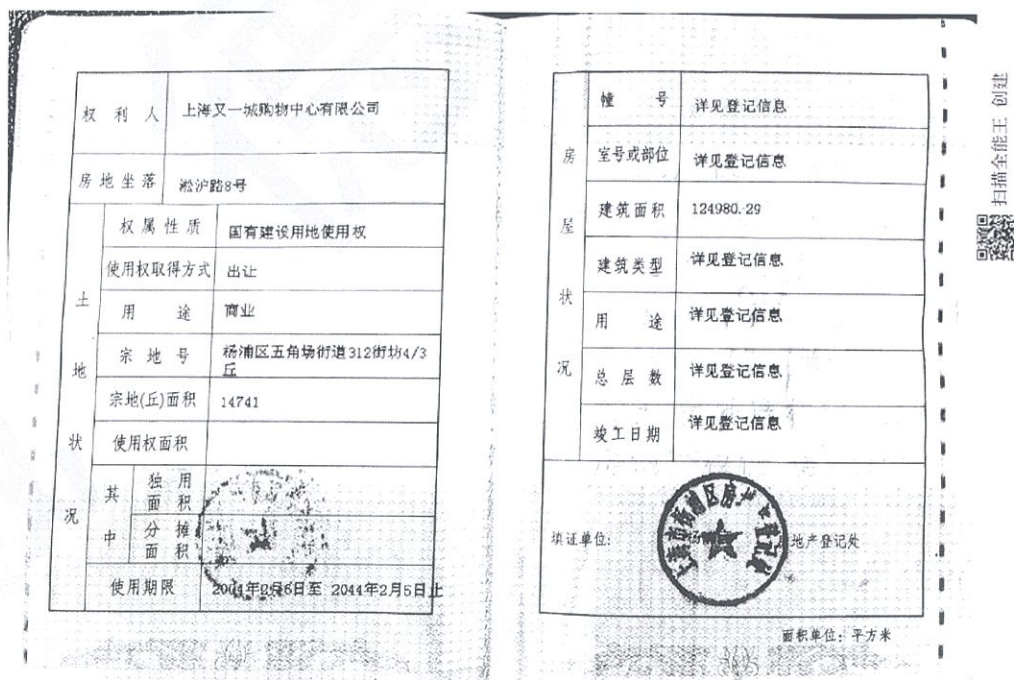 权利人 上海又一城购物中心有限公司
房地坐落 淞沪路8号
土地状况
权属性质 国有建设用地使用权
使用权取得方式 出让
用途 商业
宗地号 杨浦区五角场街道312街坊4/3
丘
宗地(丘)面积 14741
使用权面积
其中
独用面积
分摊面积
使用期限 2004年2月6日至 2044年2月5日止
房屋状况
幢号 详见登记信息
室号或部位 详见登记信息
建筑面积 124980.29
建筑类型 详见登记信息
用途 详见登记信息
总层数 详见登记信息
竣工日期 详见登记信息
填证单位: 地产登记处
上海市杨浦区房地产登记处
面积单位: 平方米
扫描全能王 创建